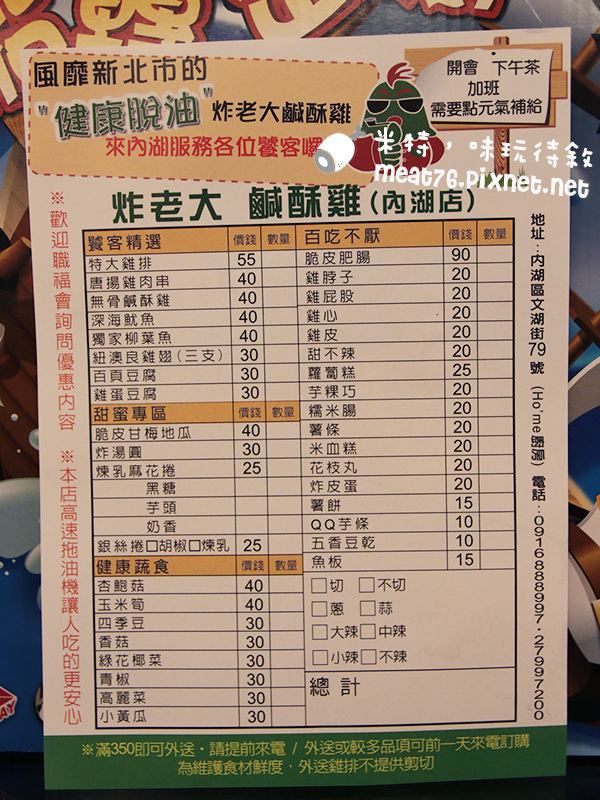 風靡新北市的
"健康脫油" 炸老大鹹酥雞
來內湖服務各位饕客囉
開會 下午茶
加班
需要點元氣補給
米特,味玩待敘
meat76.pixnet.net
炸老大 鹹酥雞(內湖店)
※歡迎職福會詢問優惠內容 ※本店高速拖油機讓人吃的更安心
饕客精選 價錢 數量
特大雞排 55
唐揚雞肉串 40
無骨鹹酥雞 40
深海魷魚 40
獨家柳葉魚 40
紐澳良雞翅(三支) 30
百頁豆腐 30
雞蛋豆腐 30
甜蜜專區 價錢 數量
脆皮甘梅地瓜 40
炸湯圓 30
煉乳麻花捲 25
黑糖
芋頭
奶香
銀絲捲□胡椒□煉乳 25
健康蔬食 價錢 數量
杏鮑菇 40
玉米筍 40
四季豆 30
香菇 30
綠花椰菜 30
青椒 30
高麗菜 30
小黃瓜 30
百吃不厭 價錢 數量
脆皮肥腸 90
雞脖子 20
雞屁股 20
雞心 20
雞皮 20
甜不辣 20
蘿蔔糕 25
芋粿巧 20
糯米腸 20
薯條 20
米血糕 20
花枝丸 20
炸皮蛋 20
薯餅 15
QQ芋條 10
五香豆乾 10
魚板 15
□切 □不切
□蔥 □蒜
□大辣 □中辣
□小辣 □不辣
總計
地址:內湖區文湖街79號 (Ho'me 廚房) 電話:0916888997.27997200
※滿350即可外送・請提前來電 / 外送或較多品項可前一天來電訂購
為維護食材鮮度・外送雞排不提供剪切